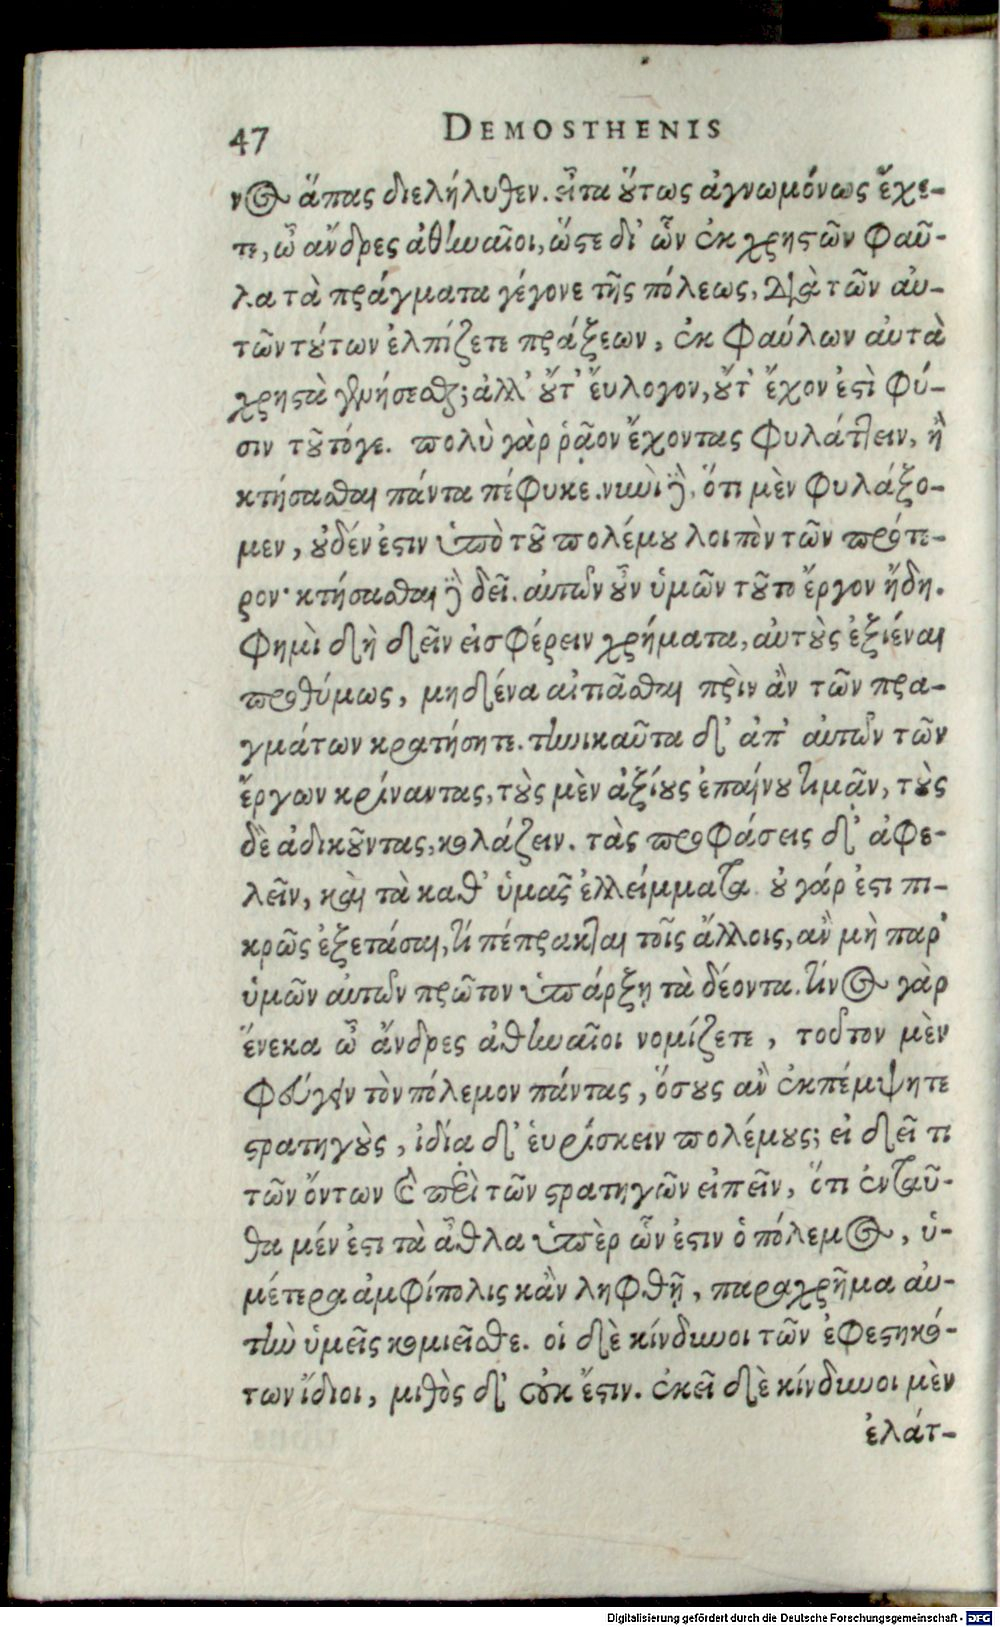 47 DEMOSTHENIS
νος ἅπας διελήλυθεν. εἶτα οὕτως ἀγνωμόνως ἔχε-
τε, ὦ ἄνδρες ἀθηναῖοι, ὥστε δι' ὧν ἐκ χρηστῶν φαῦ-
λα τὰ πράγματα γέγονε τῆς πόλεως, διὰ τῶν αὐ-
τῶν τούτων ἐλπίζετε πράξεων, ἐκ φαύλων αὐτὰ
χρηστὰ γενήσεσθαι; ἀλλ' οὔτ' εὔλογον, οὔτ' ἔχον ἐστὶ φύ-
σιν τοῦτόγε. πολὺ γὰρ ῥᾷον ἔχοντας φυλάττειν, ἢ
κτήσασθαι πάντα πέφυκε. νυνὶ δὲ, ὅτι μὲν φυλάξο-
μεν, οὐδέν ἐστιν ὑπὸ τοῦ πολέμου λοιπὸν τῶν πρότε-
ρον· κτήσασθαι δὲ δεῖ. αὐτῶν οὖν ὑμῶν τοῦτο ἔργον ἤδη.
φημὶ δὴ δεῖν εἰσφέρειν χρήματα, αὐτοὺς ἐξιέναι
προθύμως, μηδένα αἰτιᾶσθαι πρὶν ἂν τῶν πρα-
γμάτων κρατήσητε. τηνικαῦτα δ' ἀπ' αὐτῶν τῶν
ἔργων κρίναντας, τοὺς μὲν ἀξίους ἐπαίνου τιμᾷν, τοὺς
δὲ ἀδικοῦντας, κολάζειν. τὰς προφάσεις δ' ἀφε-
λεῖν, καὶ τὰ καθ' ὑμᾶς ἐλλείμματα οὐ γάρ ἐστι πι-
κρῶς ἐξετάσαι, τί πέπρακται τοῖς ἄλλοις, ἂν μὴ παρ'
ὑμῶν αὐτῶν πρῶτον ὑπάρξῃ τὰ δέοντα. τίνος γὰρ
ἕνεκα ὦ ἄνδρες ἀθηναῖοι νομίζετε, τοῦτον μὲν
φεύγειν τὸν πόλεμον πάντας, ὅσους ἂν ἐκπέμψητε
στρατηγοὺς, ἰδία δ' εὑρίσκειν πολέμους; εἰ δεῖ τι
τῶν ὄντων καὶ περὶ τῶν στρατηγῶν εἰπεῖν, ὅτι ἐνταῦ-
θα μέν ἐστι τὰ ἆθλα ὑπὲρ ὧν ἐστιν ὁ πόλεμος, ὑ-
μέτερα ἀμφίπολις κἂν ληφθῇ, παραχρῆμα αὐ-
τὴν ὑμεῖς κομιεῖσθε. οἱ δὲ κίνδυνοι τῶν ἐφεστηκό-
των ἴδιοι, μισθὸς δ' οὐκ ἔστιν. ἐκεῖ δὲ κίνδυνοι μὲν
ἐλάτ-
Digitalisierung gefördert durch die Deutsche Forschungsgemeinschaft - DFG